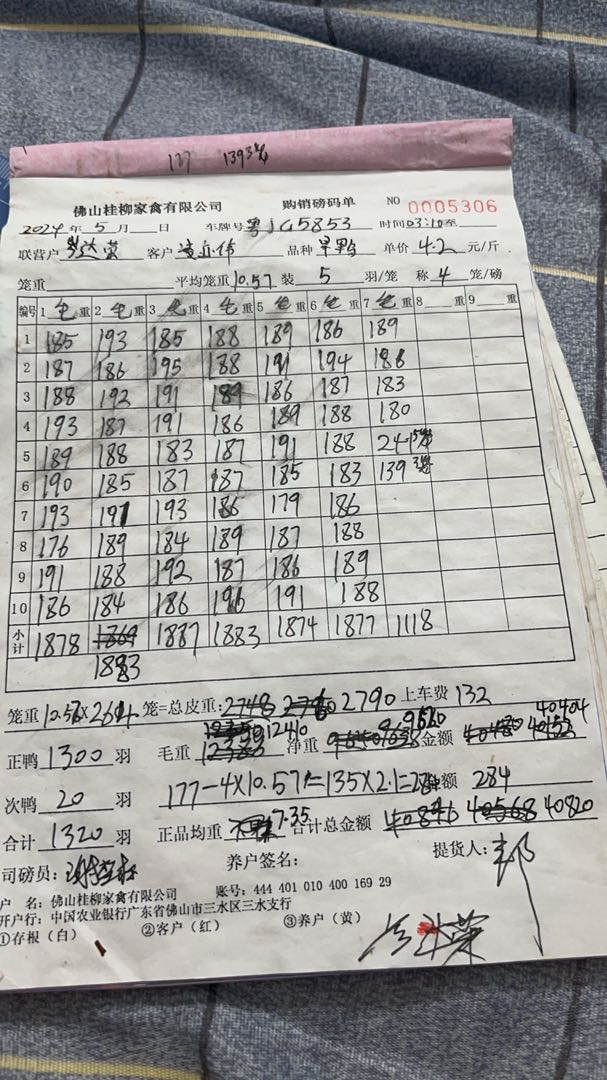 177 139 3笼
佛山桂柳家禽有限公司 购销磅码单 NO 0005306
2024年5月 日 车牌号 粤J G5853 时间03:10至
联营户 达荣 客户 品种 旱鸭 单价 4.2 元/斤
笼重 平均笼重10.57 装 5 羽/笼 称 4 笼/磅
编号 1 毛重 2 毛重 3 毛重 4 毛重 5 毛重 6 毛重 7 毛重 8 重 9 重
1 185 193 185 188 189 186 189
2 187 186 195 188 191 194 188
3 188 192 191 189 186 187 183
4 193 187 191 186 189 188 180
5 189 188 183 187 191 188 24
6 190 185 187 187 185 183 139 3笼
7 193 191 193 186 179 186
8 176 189 184 189 187 188
9 191 188 192 187 186 189
10 186 184 186 196 191 188
小计 1878 1869 1887 1883 1874 1877 1118
1883
笼重 10.57×264 笼=总皮重: 2748 2790 上车费 132
正鸭 1300 羽 毛重 12386 12410 净重 9620 金额 40404
次鸭 20 羽 177-4×10.57=135×2.1=284 额 284
合计 1320 羽 正品均重 7.35 合计总金额 40846 40568 40820
司磅员: 养户签名: 提货人:
户 名: 佛山桂柳家禽有限公司 账号: 444 401 010 400 169 29
开户行: 中国农业银行广东省佛山市三水区三水支行
①存根(白) ②客户(红) ③养户(黄)